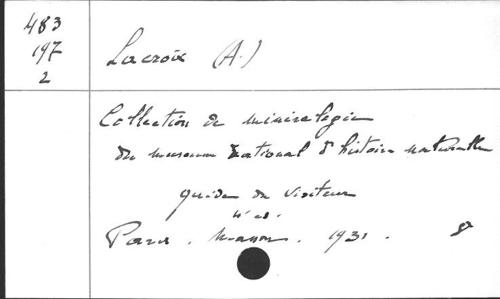 483
197
2
Lacroix (A.)
Collection de minéralogie
du museum national d'histoire naturelle
guide du visiteur
4e ed.
Paris. Masson. 1931. 8